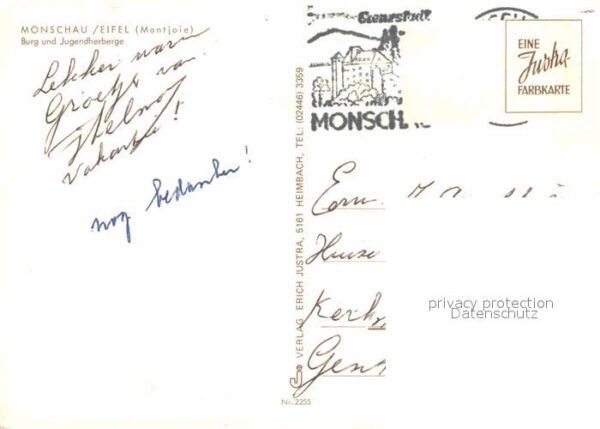 MONSCHAU /EIFEL (Montjoie)
Burg und Jugendherberge
Lekker warm
Groetjes van
vakantie!
nog bedanken!
VERLAG ERICH JUSTRA, 5161 HEIMBACH, TEL: (02446) 3359
Nr. 2255
MONSCH
EINE
Justra-
FARBKARTE
Huize
Kerk
Gen
privacy protection
Datenschutz